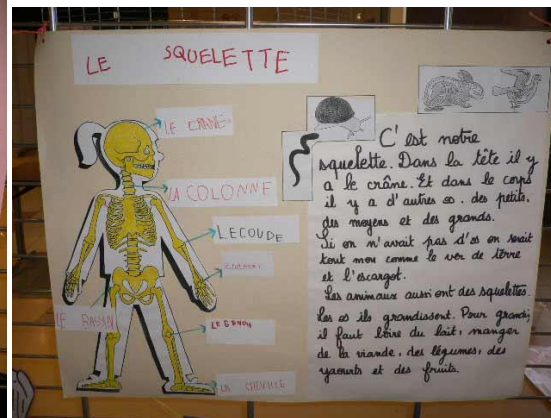 LE SQUELETTE
LE CRÂNE
LA COLONNE
LE COUDE
LE BASSIN
LE GENOU
LA CHEVILLE
C'est notre
squelette. Dans la tête il y
a le crâne. Et dans le corps
il y a d'autres os. des petits,
des moyens et des grands.
Si on n'avait pas d'os on serait
tout mou comme le ver de terre
et l'escargot.
Les animaux aussi ont des squelettes.
Les os ils grandissent. Pour grandir,
il faut boire du lait, manger
de la viande, des légumes, des
yaourts et des fruits.